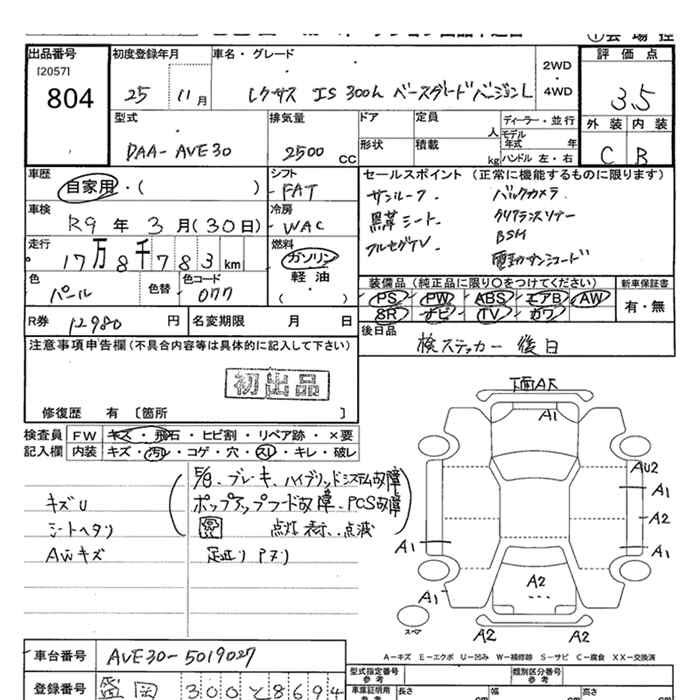 出品番号
[2057]
804
初度登録年月
25 11月
車名・グレード
レクサス IS 300h ベースグレードバージョンL
2WD
4WD
評価点
3.5
外装 内装
C B
型式
DAA-AVE30
排気量
2500 CC
ドア
定員
人
形状
積載
kg
ディーラー・並行
モデル年式 年
ハンドル 左・右
車歴
自家用・( )
シフト
FAT
セールスポイント (正常に機能するものに限ります)
サンルーフ
バックカメラ
黒革シート
クリアランスソナー
フルセグTV
BSM
車検
R9年3月(30日)
冷房
WAC
走行
17万8千783km
燃料
ガソリン
軽・油
( )
色
パール
色替
色コード
077
装備品 (純正品に限り○をつけてください)
PS PW ABS エアB AW
SR ナビ TV カワ
新車保証書
有・無
R券
12980円
名変期限 月 日
後日品
検ステッカー 後日
注意事項申告欄(不具合内容等は具体的に記入して下さい)
初出品
修復歴 有 [箇所 ]
検査員記入欄
FW キズ・飛石・ヒビ割・リペア跡・×要
内装 キズ・汚レ・コゲ・穴・スレ・キレ・破レ
キズU
シートヘタリ
AWキズ
ブレーキ、ハイブリッドシステム故障
ポップアップフード故障、PCS故障
点灯 表示、点滅
下廻り Pヌリ
下面AF
A1
AU2
A1
A2
A1
A1
A2
A1
スペア
A2
A2
A=キズ E=エクボ U=凹み W=補修跡 S=サビ C=腐食 XX=交換済
車台番号
AVE30-5019027
登録番号
盛岡 300 と 8694
型式指定番号
参考
類別区分番号
参考
車庫証明用
参考
長さ
cm
幅
cm
高さ
cm